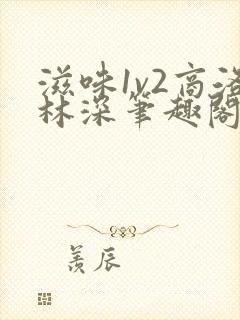 滋味1v2高洛
林深笔趣阁
羡辰